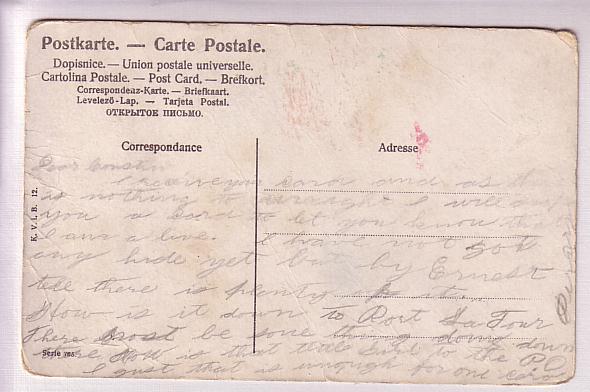 Postkarte. — Carte Postale.
Dopisnice. — Union postale universelle.
Cartolina Postale. — Post Card. — Brefkort.
Correspondenz-Karte. — Briefkaart.
Levelező-Lap. — Tarjeta Postal.
ОТКРЫТОЕ ПИСЬМО.
Correspondance
Adresse
K. V. i. B. 12.
Dear Cousin
I receive your card and as
is nothing to I will
you a card to let you know
I am a live. I have not got
any hide yet but by Ernest
tell there is plenty of it.
How is it down to Port La Tour
There most be some thing doing down
is that little girl to the P.O.
I gust that is enough for one
Serie